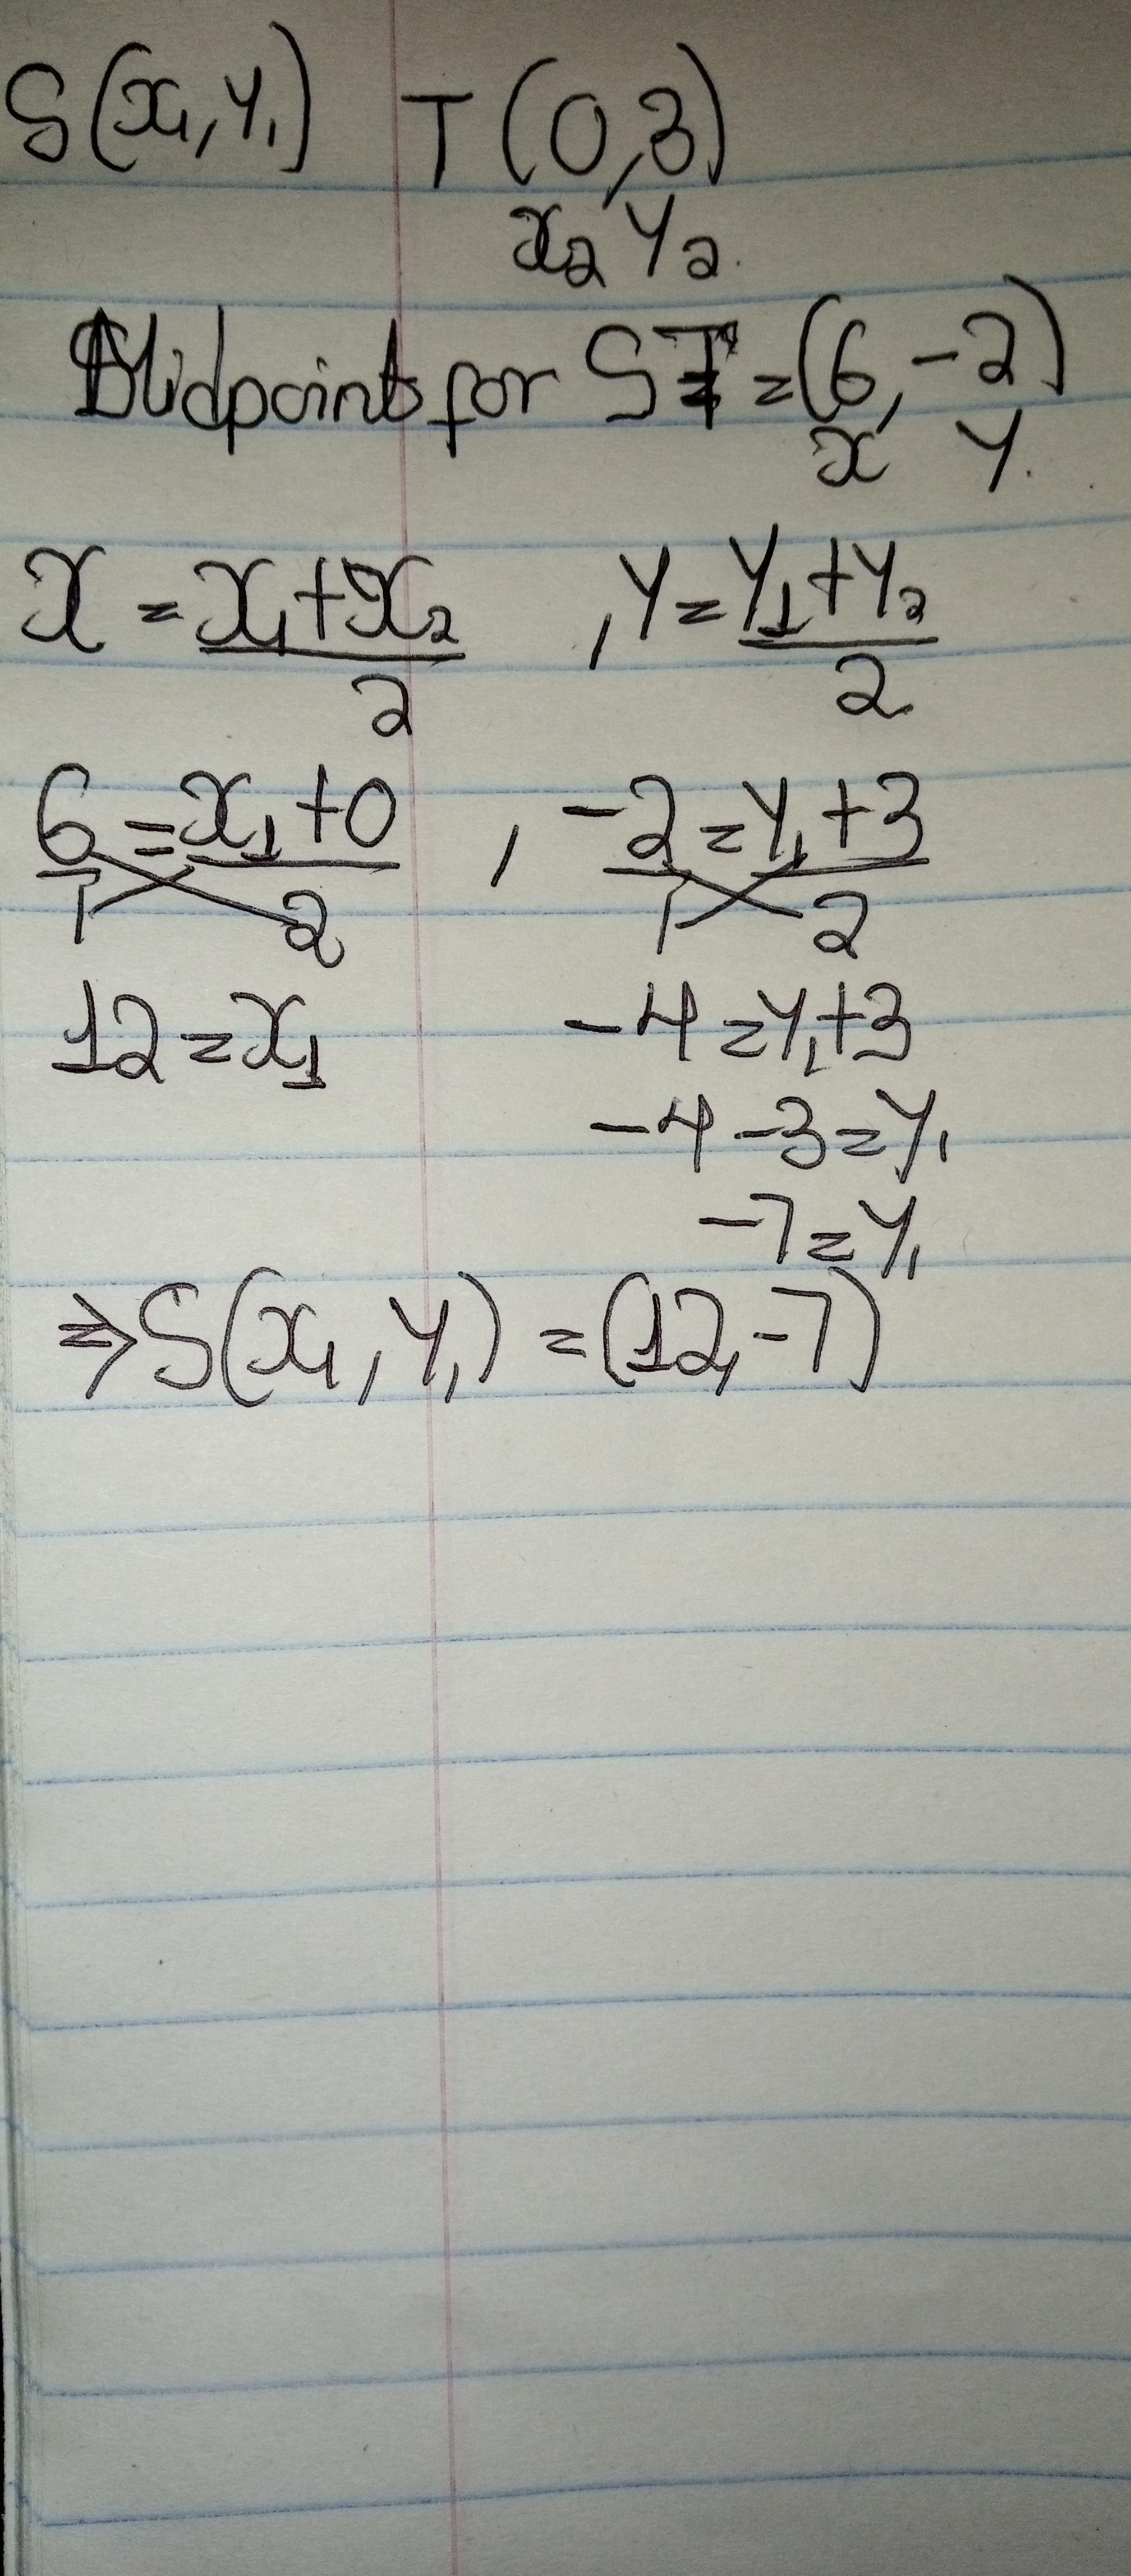 S(x₁,y₁) T(0,3)
x₂ y₂
Midpoint for ST = (6,-2)
x y
x = x₁+x₂ , y = y₁+y₂
2 2
6 = x₁+0 , -2 = y₁+3
1 2 1 2
12 = x₁ -4 = y₁+3
-4-3 = y₁
-7 = y₁
⇒ S(x₁,y₁) = (12,-7)